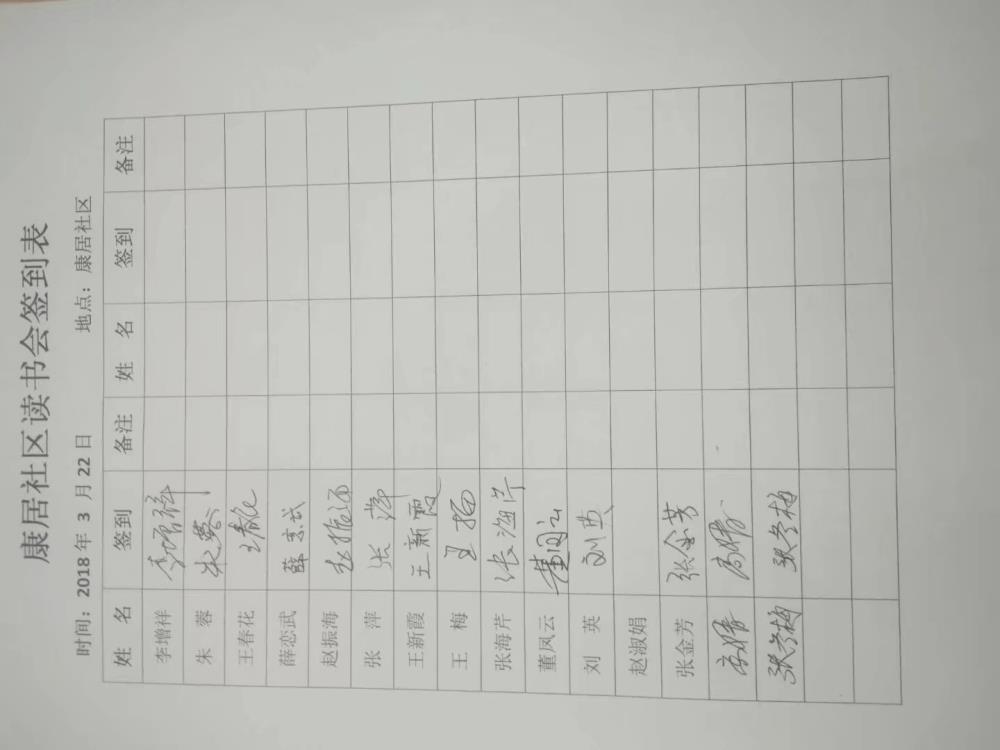 康居社区读书会签到表
时间：2018 年 3 月 22 日 地点：康居社区
姓 名 签到 备注 姓 名 签到 备注
李增祥 李增祥
朱 蓉 朱蓉
王春花 王春花
薛恋武 薛恋武
赵振海 赵振海
张 萍 张 萍
王新霞 王新霞
王 梅 王梅
张海芹 张海芹
董凤云 董凤云
刘 英 刘英
赵淑娟
张金芳 张金芳